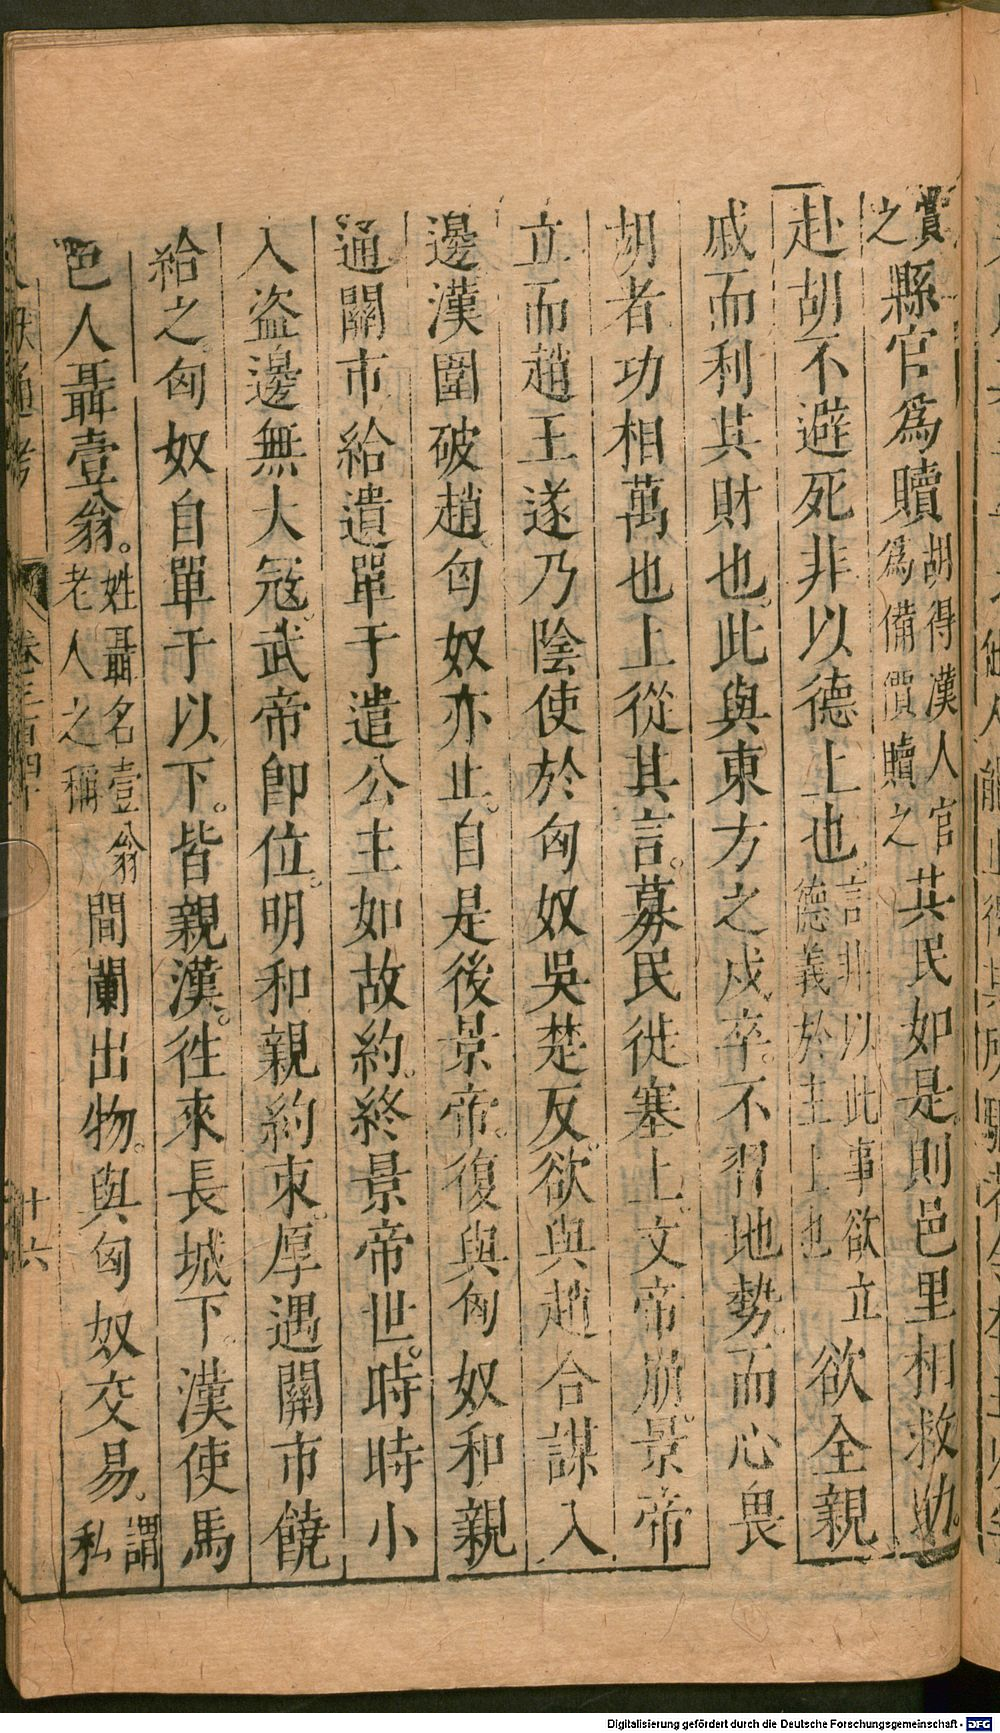 賞之縣官爲贖胡得漢人官爲備價贖之其民如是則邑里相救助
赴胡不避死非以德上也言非以此事欲立德義於主上也欲全親
戚而利其財也此與東方之戍卒不習地勢而心畏
胡者功相萬也上從其言募民徙塞上文帝崩景帝
立而趙王遂乃陰使於匈奴吳楚反欲與趙合謀入
邊漢圍破趙匈奴亦止自是後景帝復與匈奴和親
通關市給遺單于遣公主如故約終景帝世時時小
入盜邊無大寇武帝卽位明和親約束厚遇關市饒
給之匈奴自單于以下皆親漢徃來長城下漢使馬
邑人聶壹翁姓聶名壹翁老人之稱間闌出物與匈奴交易謂私
文獻通考 卷三百四十 十六
Digitalisierung gefördert durch die Deutsche Forschungsgemeinschaft - DFG